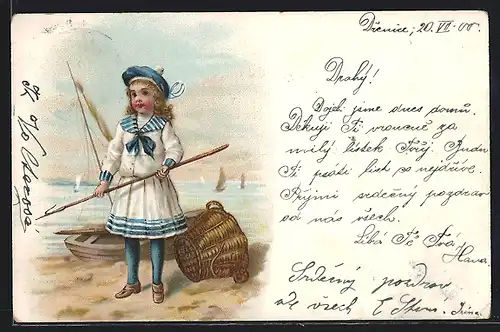 Dřenice; 20. VII - 00.
Drahý!
Dojeli jsme dnes domů.
Děkuji Ti vroucně za
milý lístek Tvůj. Budu
Ti psáti list co nejdříve.
Přijmi srdečný pozdrav
od nás všech.
Líbá Tě Tvá
Hana.
Srdečný pozdrav
ode všech E
Irena.